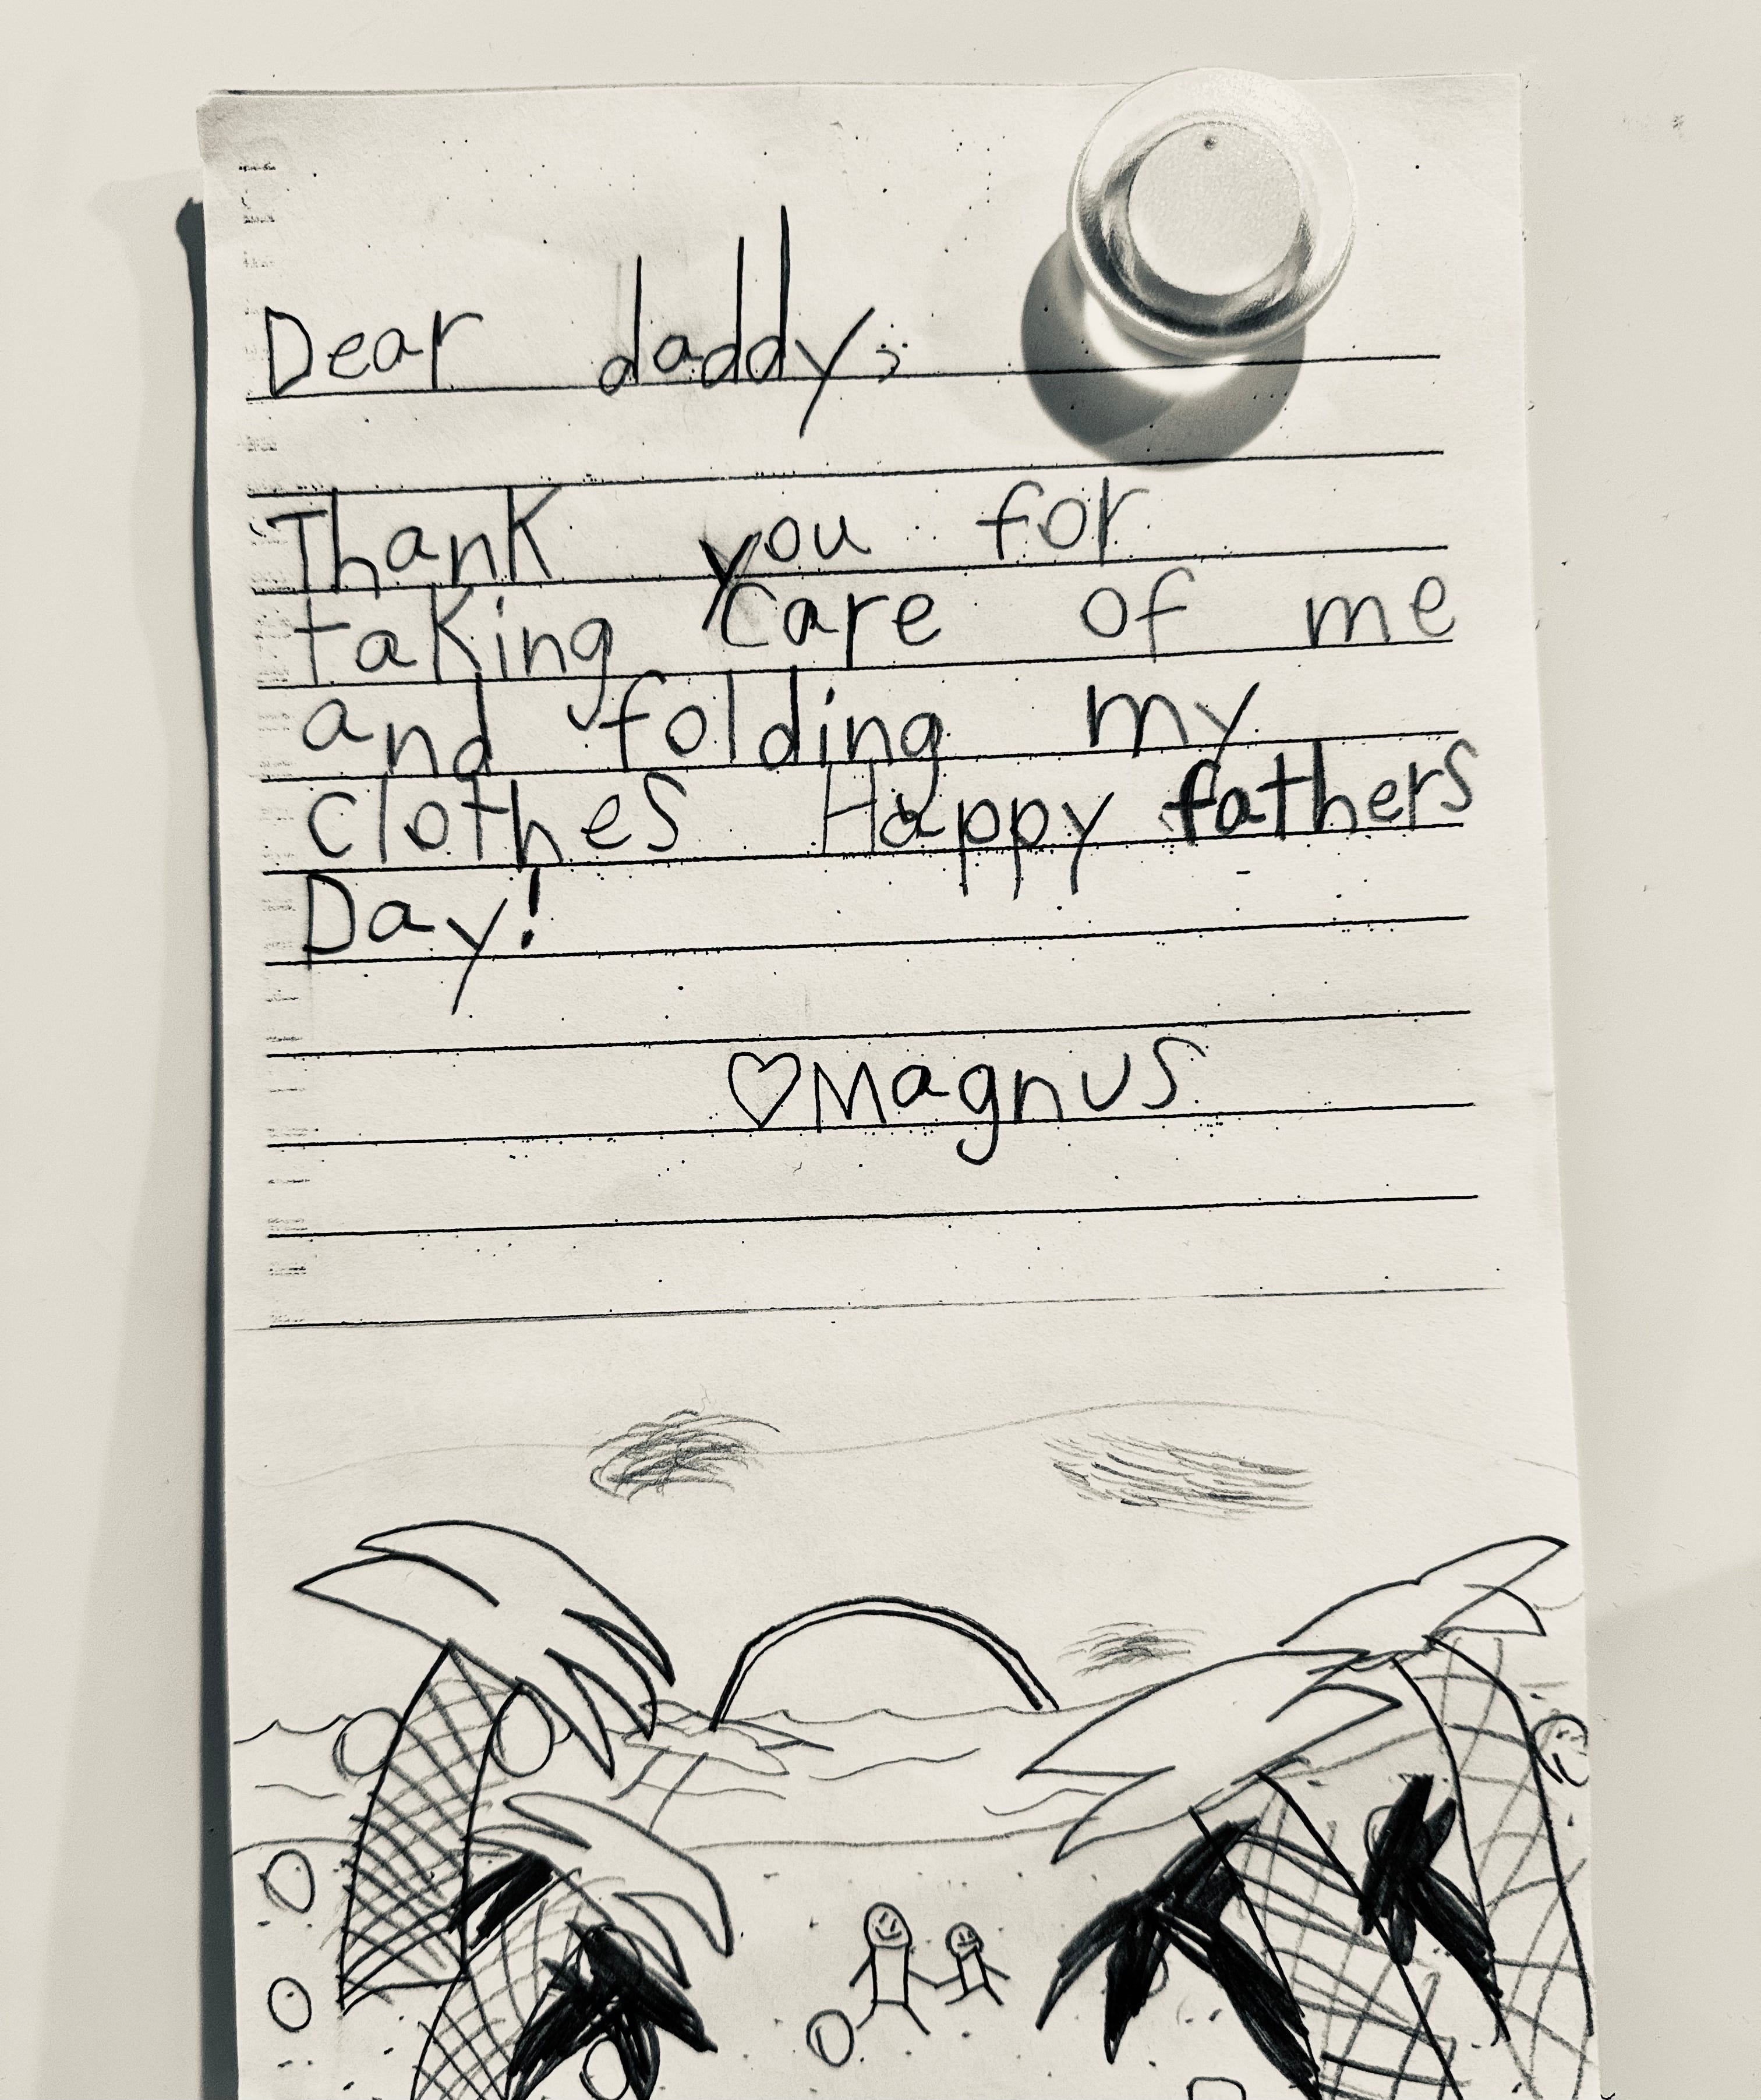 Dear daddy,
Thank you for
taking care of me
and folding my
clothes Happy fathers
Day!
♡Magnus